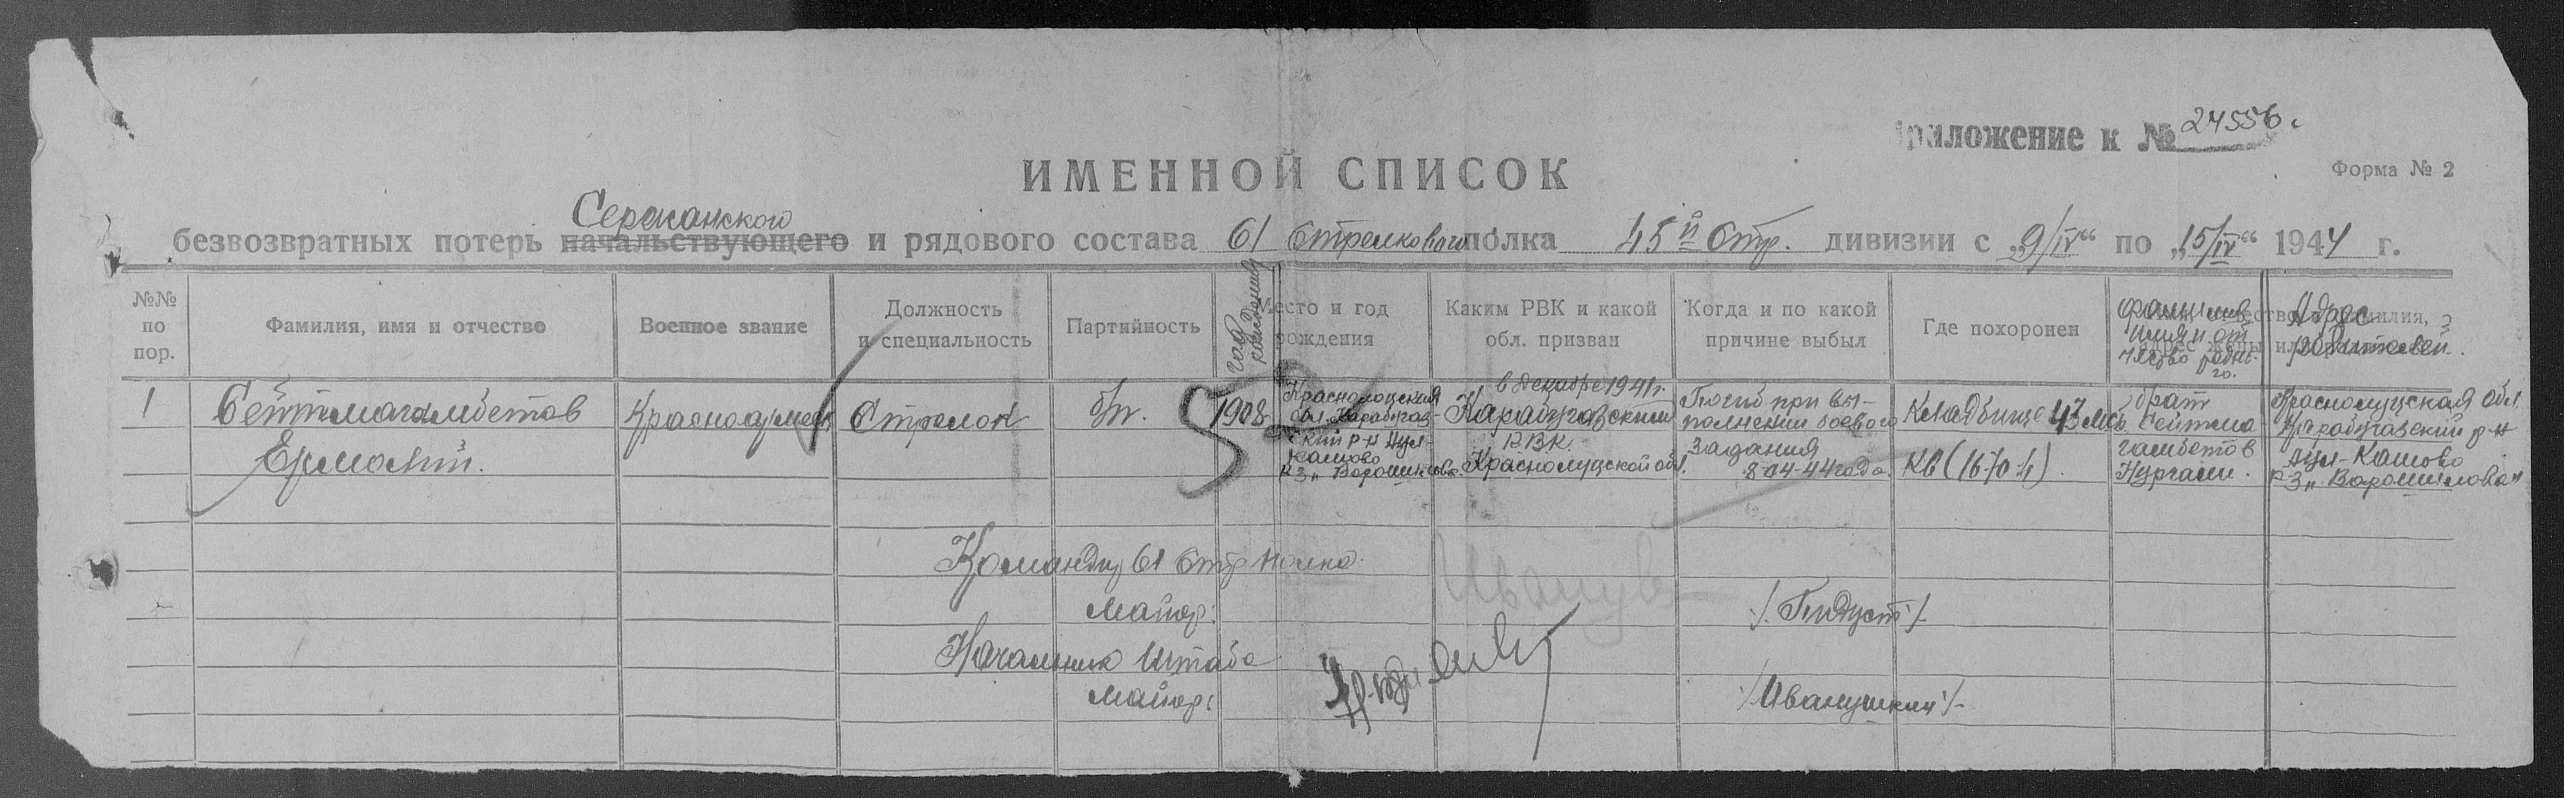 риложение к № 24556.
ИМЕННОЙ СПИСОК
Форма № 2
Сержанского
безвозвратных потерь начальствующего и рядового состава 61 Стрелкового полка 45й Стр. дивизии с „9/IV“ по „15/IV“ 1944 г.
№№ по пор.
Фамилия, имя и отчество
Военное звание
Должность и специальность
Партийность
Год рождения
Место и год рождения
Каким РВК и какой обл. призван
Когда и по какой причине выбыл
Где похоронен
Фамилия имя и от чество
Адрес родителей
1
Сейтмагамбетов
Красноармеец
Стрелок
б/п.
1908
5
Ермолай.
Краснолуцская
обл. Карабугаз-
ский р-н Аул-
Кашово
к-з „Ворошилова.
в декабре 1941 г.
Карабугазским
РВК.
Краснолуцской обл.
Погиб при вы-
полнении боевого
задания
8-04-44 года.
Кладбище 43 мсб
Кв (16-70-4).
брат
Сейтма
гамбетов
Нургали.
Краснолуцская обл
Карабугазский р-н
Аул-Кашово
к-з „Ворошилова"
Командир 61 Стр полка
Майор:
/. Гиндуст /.
Начальник Штаба
Майор:
/ Иванушкин /-